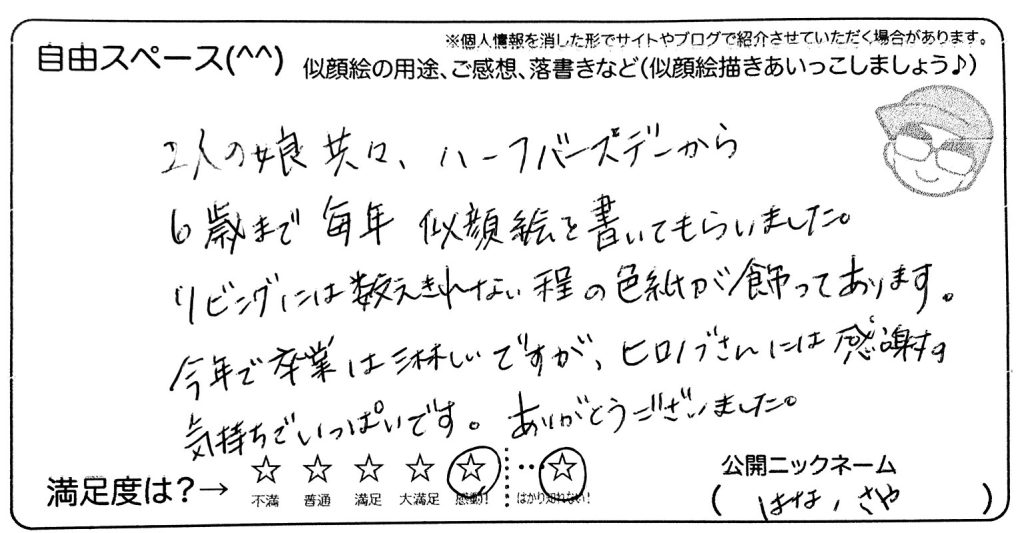 ※個人情報を消した形でサイトやブログで紹介させていただく場合があります。
自由スペース(^^) 似顔絵の用途、ご感想、落書きなど(似顔絵描きあいっこしましょう♪)
2人の娘共々、ハーフバースデーから
6歳まで毎年似顔絵を書いてもらいました。
リビングには数えきれない程の色紙が飾ってあります。
今年で卒業は淋しいですが、ヒロノブさんには感謝す
気持ちでいっぱいです。ありがとうございました。
満足度は?→ ☆ ☆ ☆ ☆ ☆ … ☆
不満 普通 満足 大満足 感動! はかり知れない!
公開ニックネーム
( はな , さや )